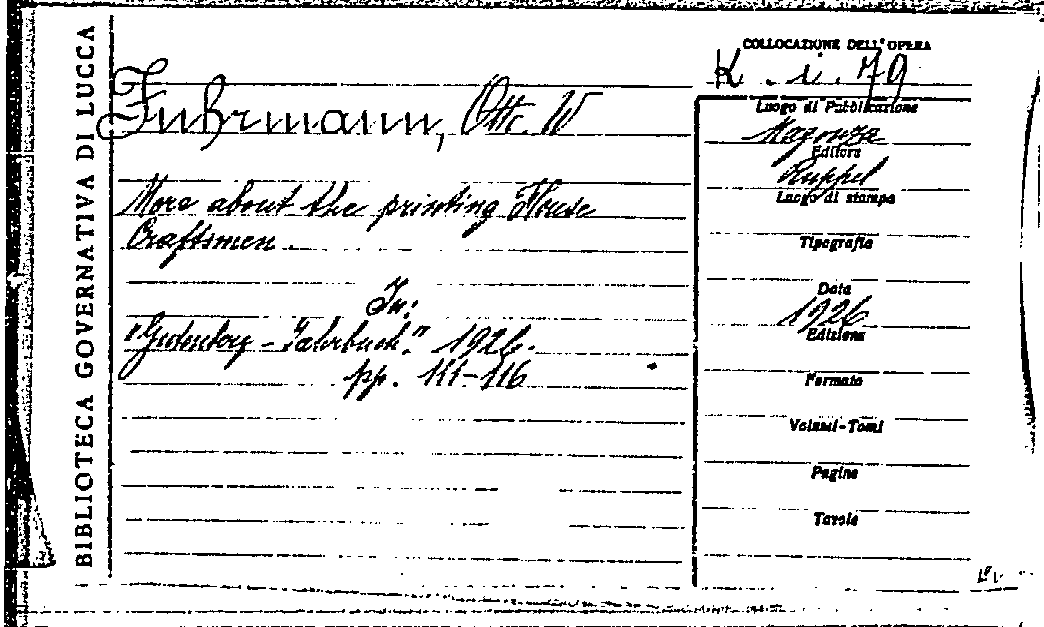 BIBLIOTECA GOVERNATIVA DI LUCCA
Fuhrmann, Otto W
More about the printing House
Craftsmen
In:
"Gutenberg-Jahrbuch". 1926.
pp. 111-116
COLLOCAZIONE DELL'OPERA
K. i. 79
Luogo di Pubblicazione
Magonza
Editore
Ruppel
Luogo di stampa
Tipografia
Data
1926
Edizione
Formato
Volumi-Tomi
Pagine
Tavole